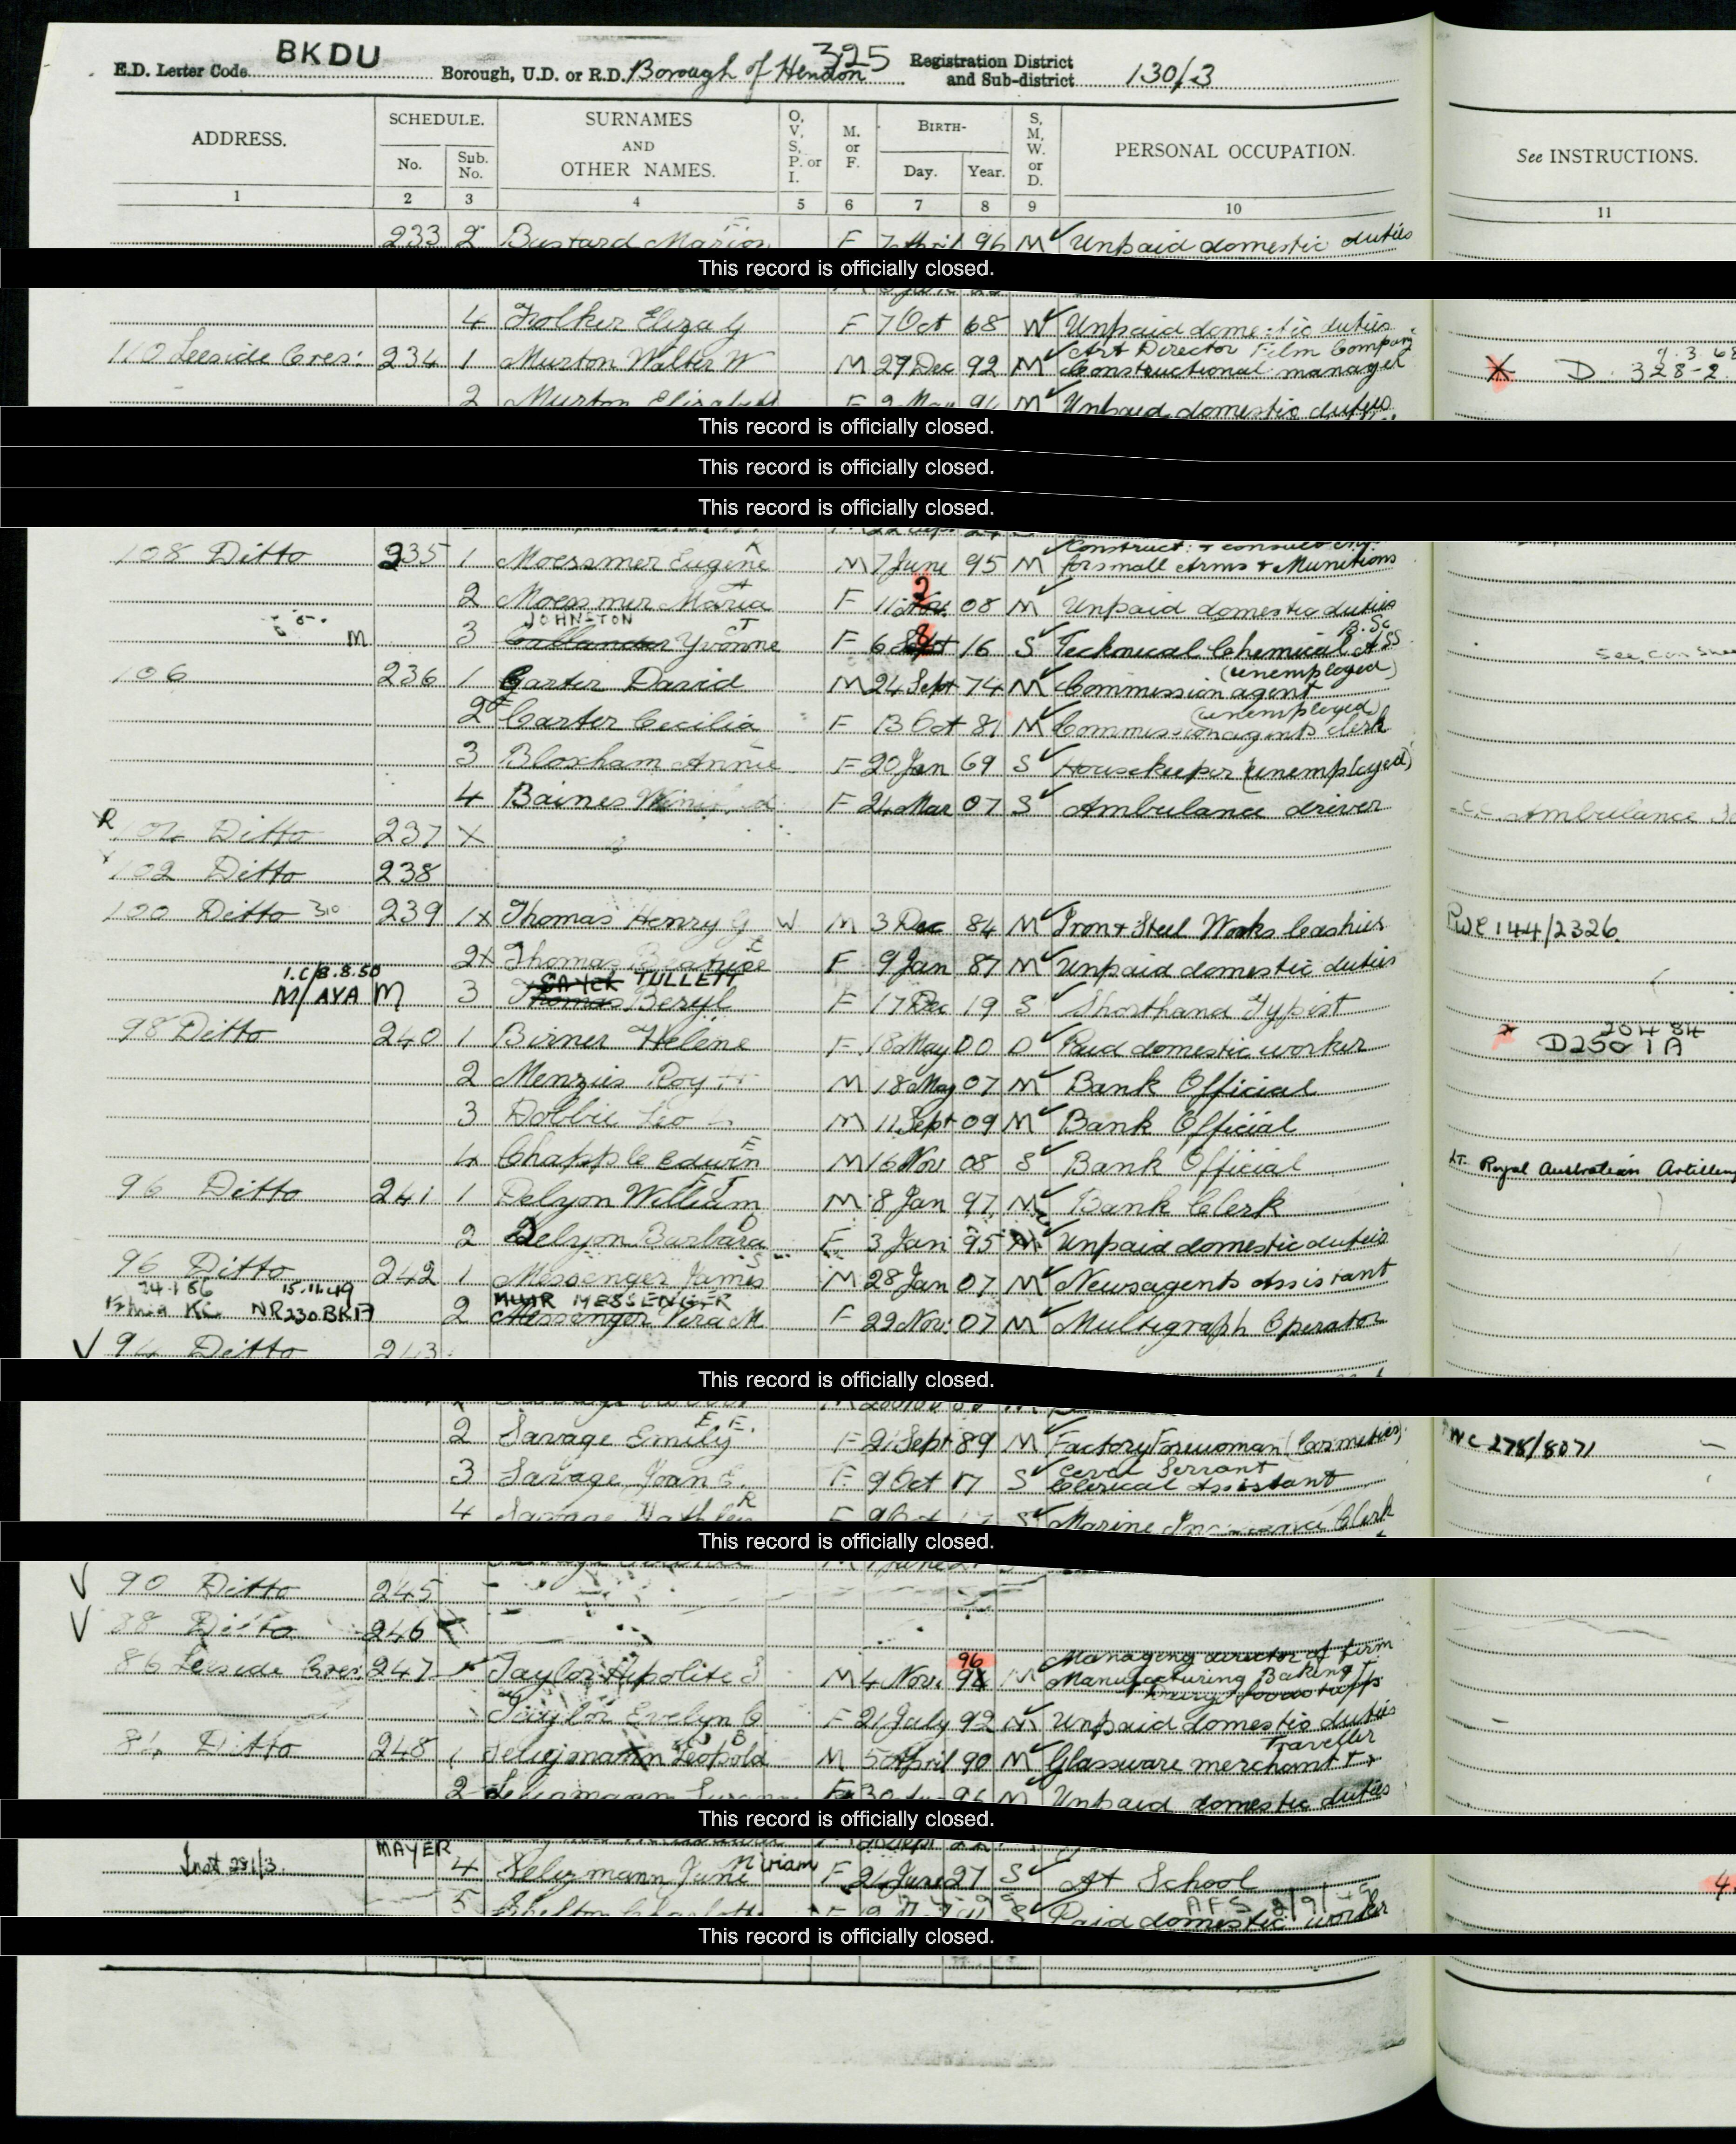 BKDU 325
E.D. Letter Code Borough, U.D. or R.D. Borough of Hendon Registration District and Sub-district 130/3
ADDRESS. SCHEDULE. No. Sub. No. SURNAMES AND OTHER NAMES. O, V, S, P. or I. M. or F. BIRTH- Day. Year. S, M, W. or D. PERSONAL OCCUPATION. See INSTRUCTIONS.
1 2 3 4 5 6 7 8 9 10 11
233 2 Bustard Marion F 7 April 96 M Unpaid domestic duties
This record is officially closed.
4 Folker Eliza G F 7 Oct 68 W Unpaid domestic duties
110 Leeside Cres: 234 1 Murton Walter W M 29 Dec 92 M Art Director Film Company Constructional manager D. 328-2
2 Murton Elizabeth F 2 May 94 M Unpaid domestic duties
This record is officially closed.
This record is officially closed.
This record is officially closed.
108 Ditto 235 1 Moessmer Eugene K M 7 June 95 M Construct: + consult eng. for small Arms + Munitions
2 Moessmer Maria F 11 Nov. 2 08 M Unpaid domestic duties
M 3 Callander JOHNSTON Yvonne J F 6 Sept 16 S Technical Chemical Ass B.Sc
106 236 1 Carter David M 24 Sept 74 M Commission agent (unemployed)
2 Carter Cecilia F 13 Oct 81 M Commission agents clerk (unemployed)
3 Bloxham Annie F 20 Jan 69 S Housekeeper (unemployed)
4 Baines F 24 Mar 07 S Ambulance driver Ambulance
R Ditto 237 X
102 Ditto 238
100 Ditto 239 1X Thomas Henry G W M 3 Dec 84 M Iron + Steel Works Cashier PWC 144/2326
2X Thomas Beatrice E F 9 Jan 87 M Unpaid domestic duties
1.C/8.8.50 M/AYA M 3 Thomas TULLETT Beryl F 17 Dec 19 S Shorthand Typist
98 Ditto 240 1 Birner Helene F 18 May 00 D Paid domestic worker 20 4 84 D2501A
2 Menzies Roy M 18 May 07 M Bank Official
3 Dobbie Leo M 11 Sept 09 M Bank Official
4 Chapple Edwin E M 16 Nov 08 S Bank Official Lt. Royal Australian Artillery
96 Ditto 241 1 Delyon William M 8 Jan 97 M Bank Clerk
2 Delyon Barbara D F 3 Jan 95 M Unpaid domestic duties
96 Ditto 242 1 Messenger James S M 28 Jan 07 M Newsagents Assistant
24.1.56 15.11.49 NR230BKD 2 Messenger MUIR MESSENGER Vera M F 29 Nov: 07 M Multigraph Operator
V 94 Ditto 243
This record is officially closed.
2 Savage Emily E.F. F 21 Sept 89 M Factory Forewoman (Cosmetics) WC 278/8071
3 Savage Joan E. F 9 Oct 17 S Civil Servant Clerical Assistant
4 Savage Kathleen R F 9 Oct 17 S Marine Insurance Clerk
This record is officially closed.
V 90 Ditto 245
V 88 Ditto 246
86 Leeside Cres: 247 Taylor Hipolite S M 4 Nov: 96 M Managing director of firm Manufacturing Baking
Taylor Evelyn G F 21 July 92 M Unpaid domestic duties
84 Ditto 248 1 Seligmann Leopold B M 5 April 90 M Glassware merchant + Traveller
2 Seligmann F 30 96 M Unpaid domestic duties
This record is officially closed.
Inst 281/3. MAYER 4 Seligmann June Miriam F 21 June 27 S At School 4
5 Shelton Charlotte F 9 S Paid domestic worker AFS 2/9/
This record is officially closed.